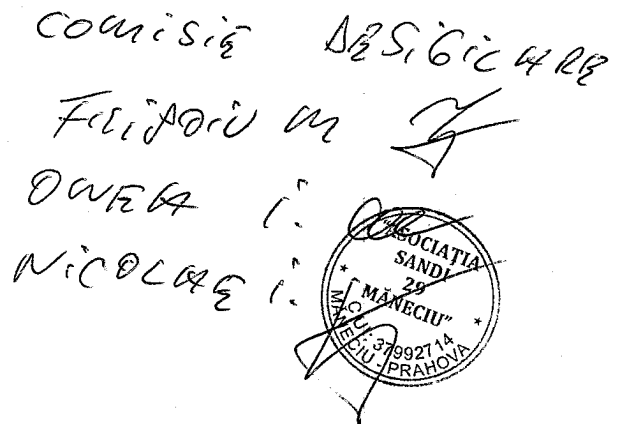 COMISIE DESIGILARE
FILIPOIU M
ONEA I.
NICOLAE I.
"ASOCIAȚIA
SANDI
29
MĂNECIU"
CUI: 37992714
MĂNECIU - PRAHOVA